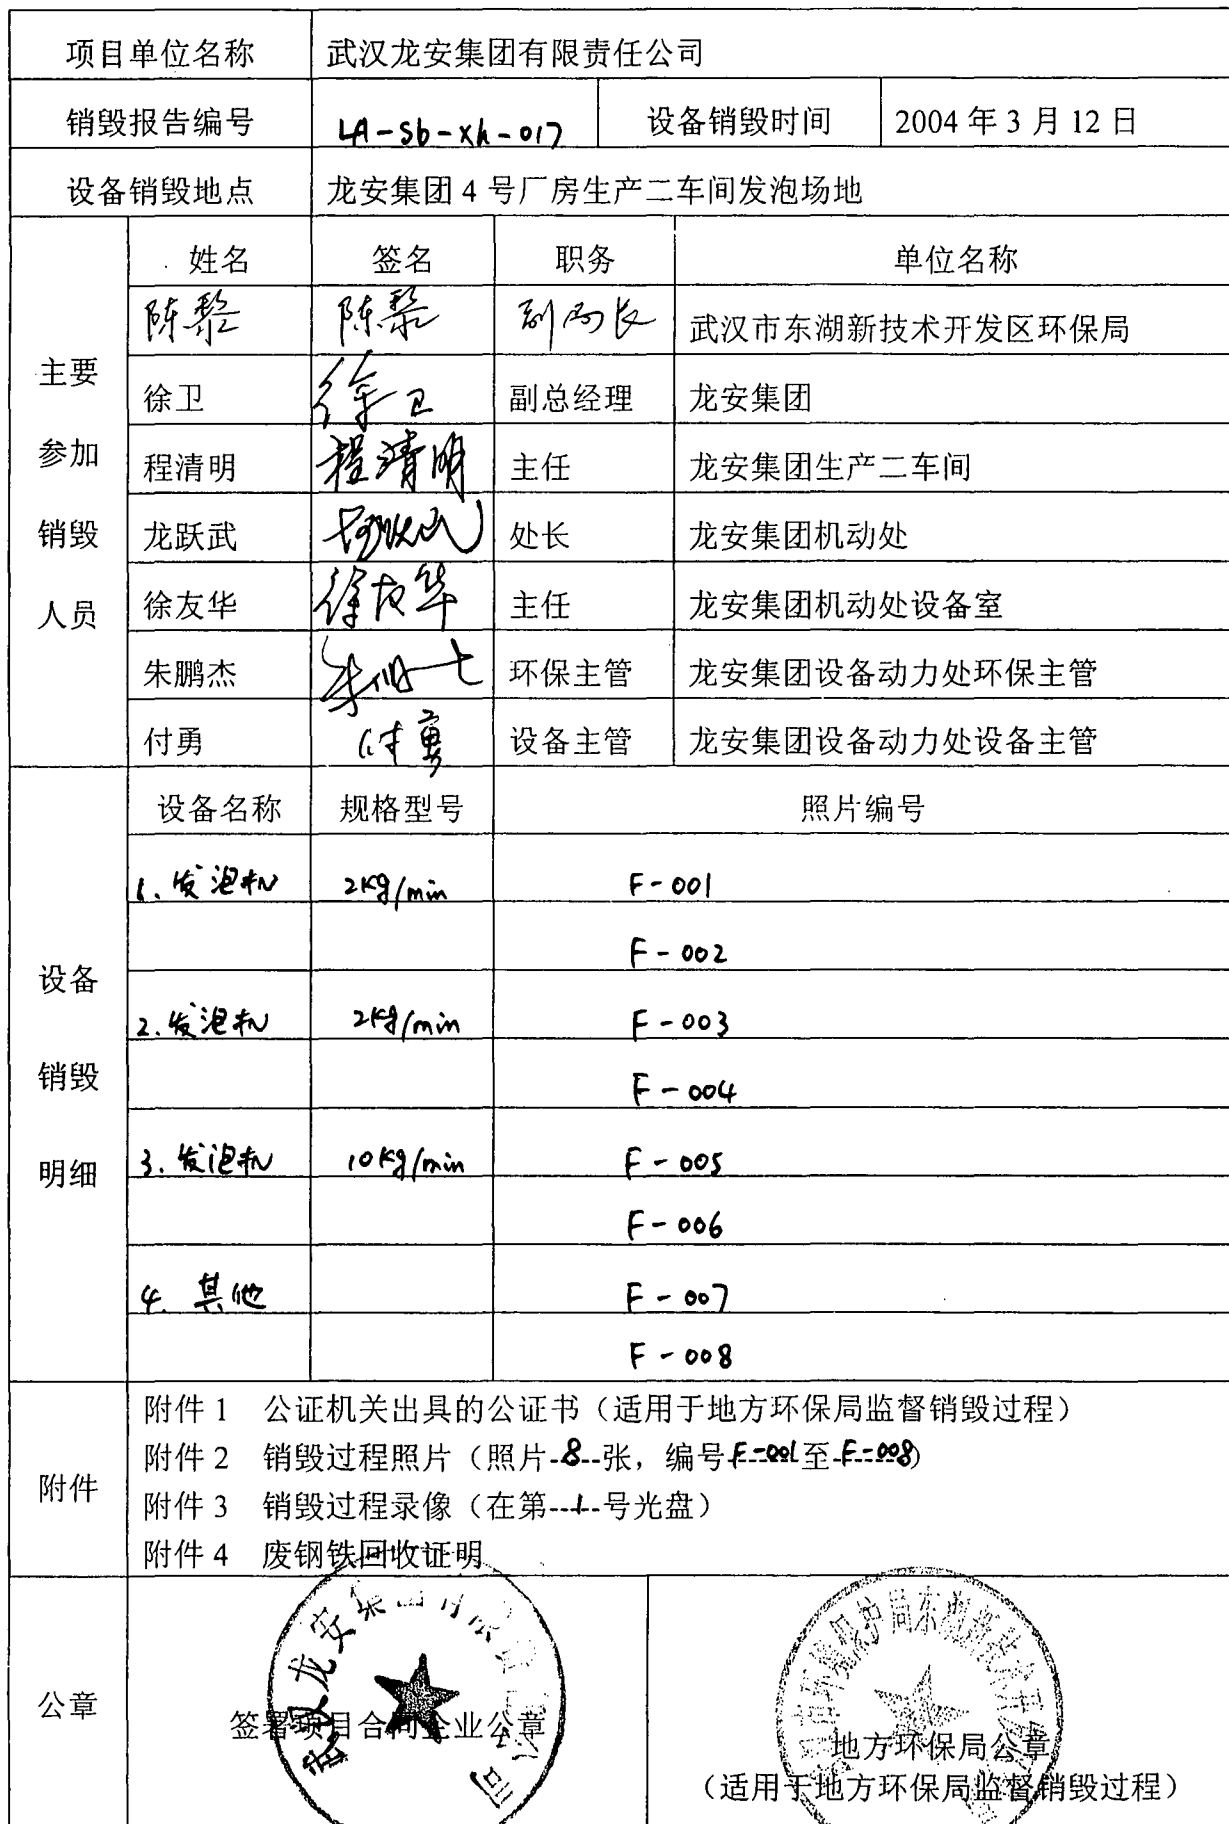 项目单位名称 武汉龙安集团有限责任公司
销毁报告编号 LA-Sb-xh-017 设备销毁时间 2004 年 3 月 12 日
设备销毁地点 龙安集团 4 号厂房生产二车间发泡场地
主要参加销毁人员
姓名 签名 职务 单位名称
陈 陈 副局长 武汉市东湖新技术开发区环保局
徐卫 徐卫 副总经理 龙安集团
程清明 程清明 主任 龙安集团生产二车间
龙跃武 处长 龙安集团机动处
徐友华 徐友华 主任 龙安集团机动处设备室
朱鹏杰 环保主管 龙安集团设备动力处环保主管
付勇 付勇 设备主管 龙安集团设备动力处设备主管
设备销毁明细
设备名称 规格型号 照片编号
1. 发泡机 2Kg/min F-001
F-002
2. 发泡机 2Kg/min F-003
F-004
3. 发泡机 10Kg/min F-005
F-006
4. 其他 F-007
F-008
附件
附件 1 公证机关出具的公证书（适用于地方环保局监督销毁过程）
附件 2 销毁过程照片（照片 8 张，编号 F-001 至 F-008）
附件 3 销毁过程录像（在第 1 号光盘）
附件 4 废钢铁回收证明
公章
武汉龙安集团有限责任公司
签署项目合同企业公章
地方环保局公章
（适用于地方环保局监督销毁过程）